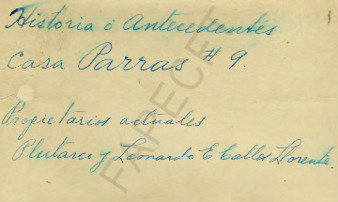 Historia ó Antecedentes
Casa Parras # 9.
Propietarios actuales
Plutarco y Leonardo E Calles Llorente.
FAPECFT